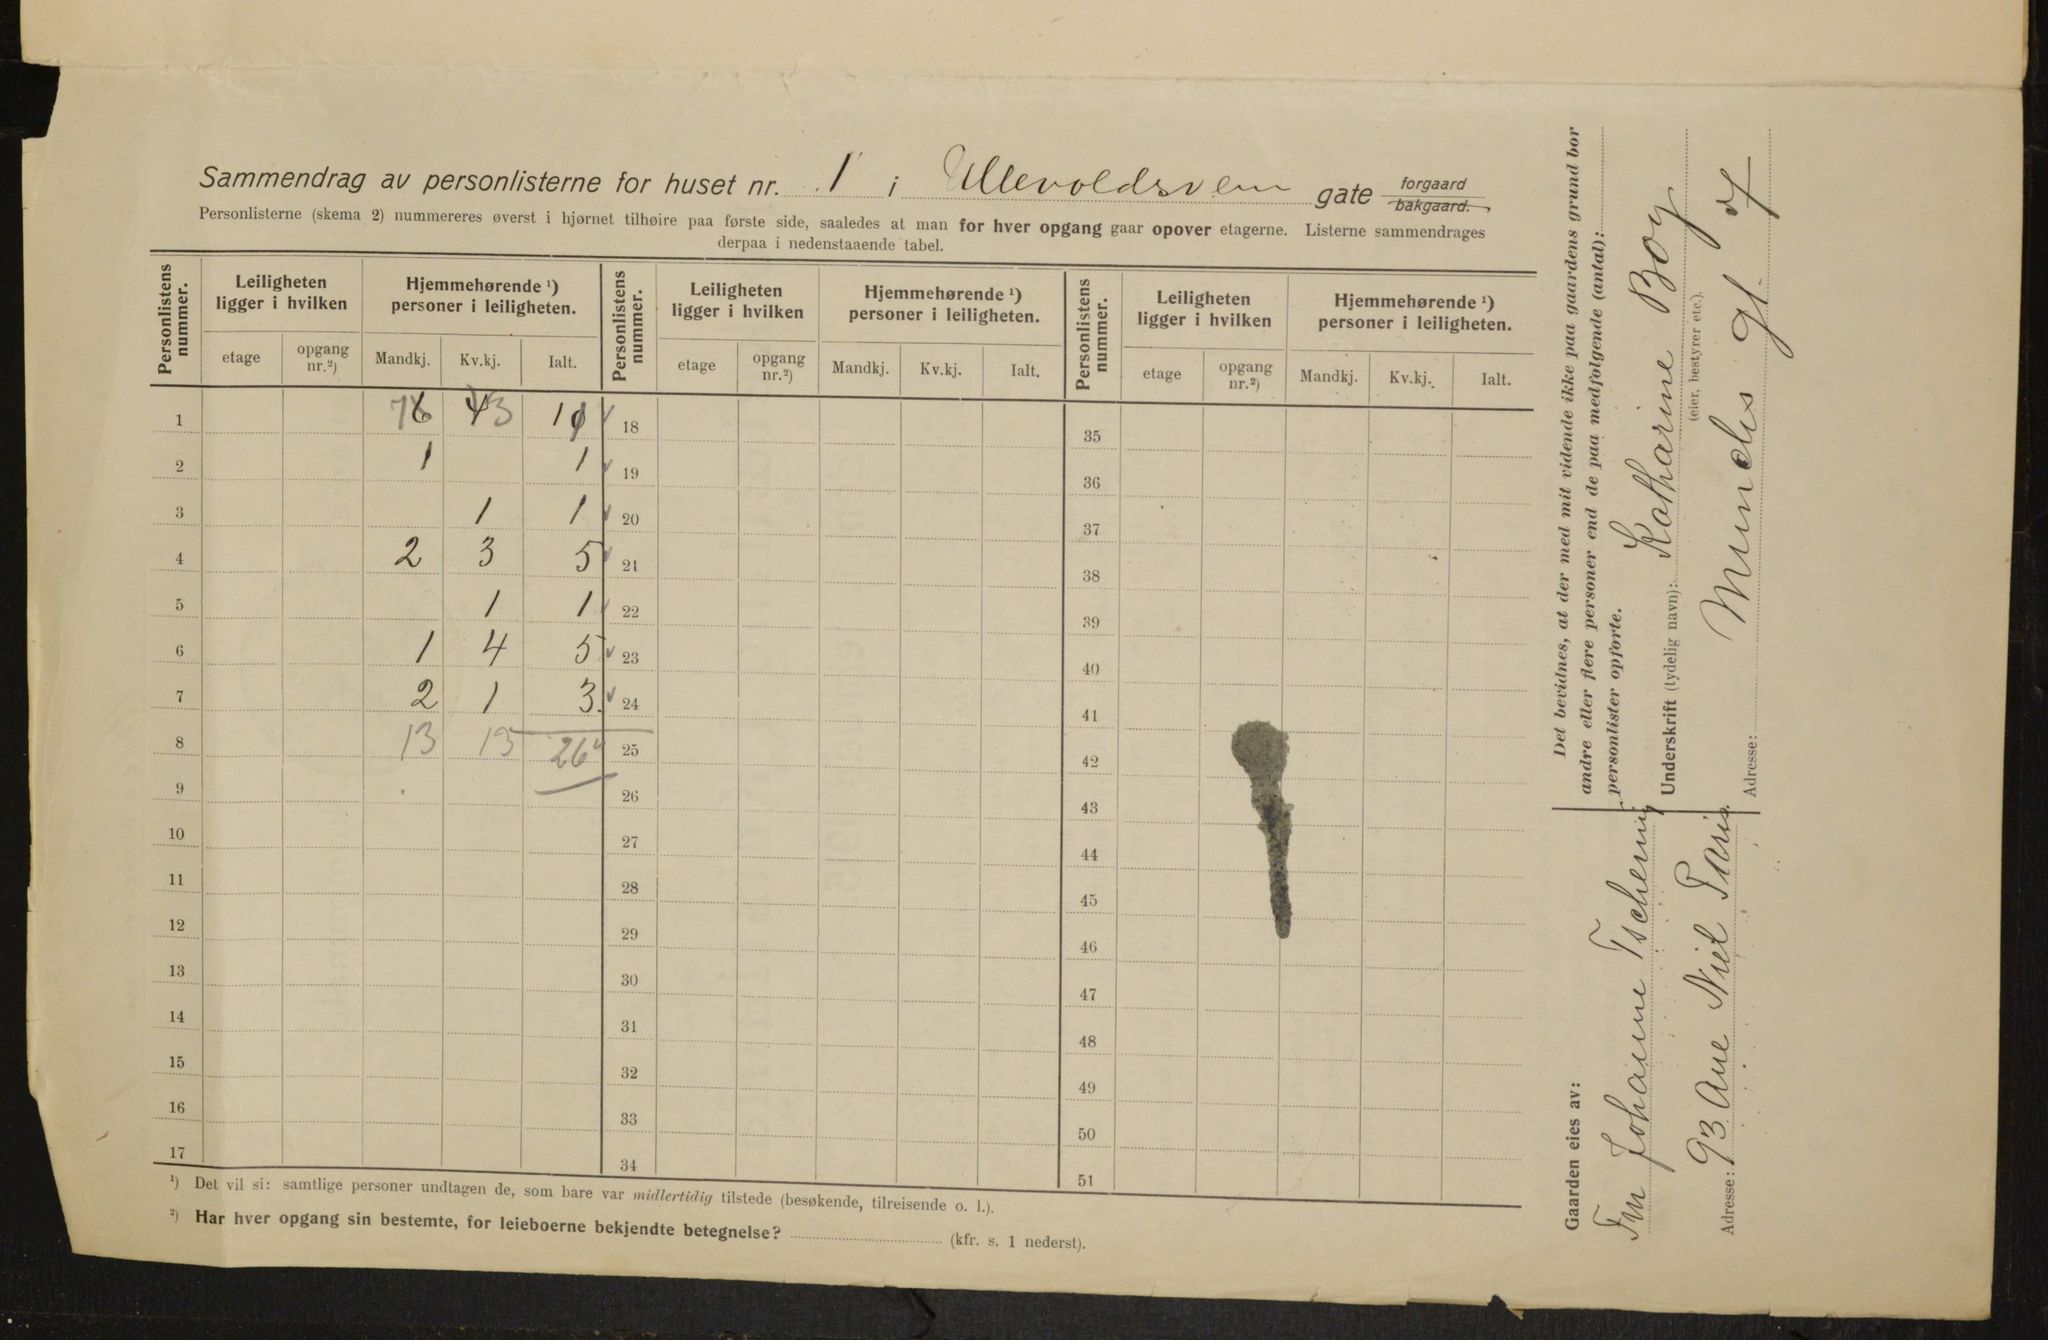 Sammendrag av personlisterne for huset nr. 1 i Ullevoldsveien gate forgaard bakgaard.
Personlisterne (skema 2) nummereres øverst i hjørnet tilhøire paa første side, saaledes at man for hver opgang gaar opover etagerne. Listerne sammendrages
derpaa i nedenstaaende tabel.
Personlistens nummer. Leiligheten ligger i hvilken Hjemmehørende ¹) personer i leiligheten. Personlistens nummer. Leiligheten ligger i hvilken Hjemmehørende ¹) personer i leiligheten. Personlistens nummer. Leiligheten ligger i hvilken Hjemmehørende ¹) personer i leiligheten.
etage opgang nr.²) Mandkj. Kv.kj. Ialt. etage opgang nr.²) Mandkj. Kv.kj. Ialt. etage opgang nr.²) Mandkj. Kv.kj. Ialt.
1 7 6 4 3 10 18 35
2 1 1 19 36
3 1 1 20 37
4 2 3 5 21 38
5 1 1 22 39
6 1 4 5 23 40
7 2 1 3. 24 41
8 13 13 26 25 42
9 26 43
10 27 44
11 28 45
12 29 46
13 30 47
14 31 48
15 32 49
16 33 50
17 34 51
¹) Det vil si: samtlige personer undtagen de, som bare var midlertidig tilstede (besøkende, tilreisende o. l.).
²) Har hver opgang sin bestemte, for leieboerne bekjendte betegnelse? (kfr. s. 1 nederst).
Det bevidnes, at der med mit vidende ikke paa gaardens grund bor
andre eller flere personer end de paa medfølgende (antal):
personlister opførte.
Underskrift (tydelig navn): Katharine Boy
(eier, bestyrer etc.).
Adresse: Munchs gt. 7
Gaarden eies av:
Fru Johanne Tscherning
Adresse: 93 Ave Niel Paris.